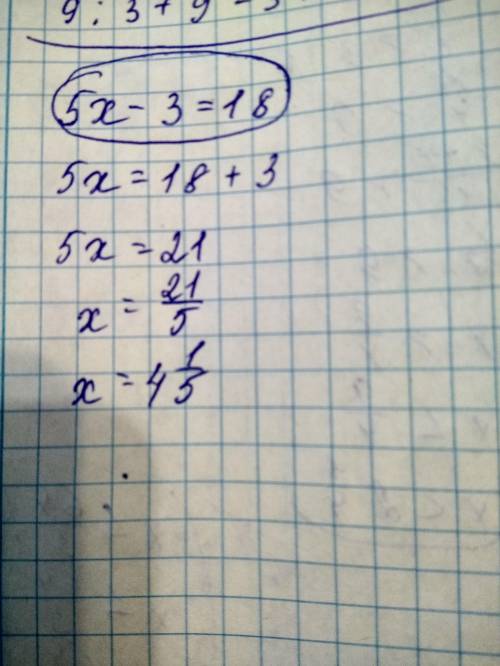 9 : 3 + 9 -
5x - 3 = 18
5x = 18 + 3
5x = 21
x = 21/5
x = 4 1/5